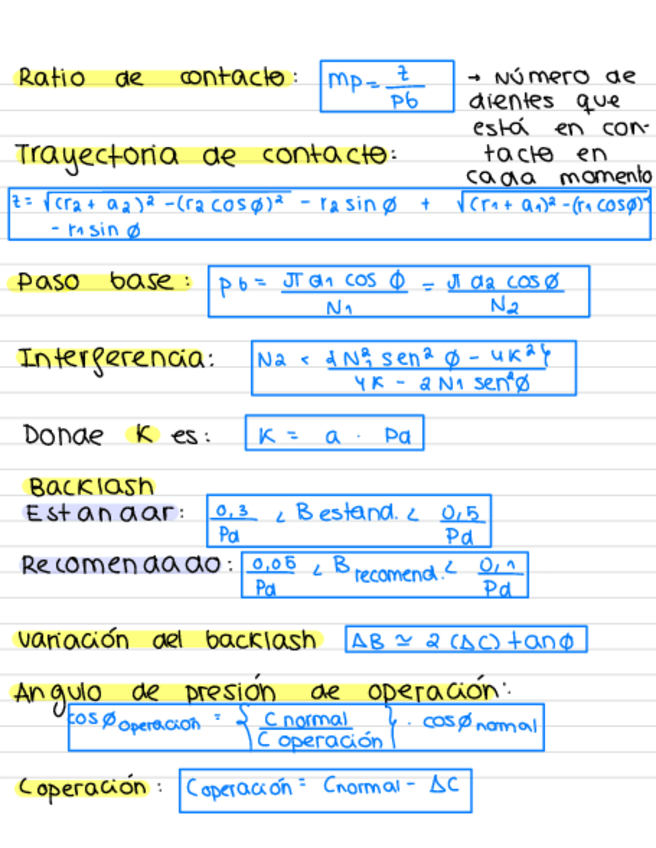 Ratio de contacto: mp = z / pb → Número de
dientes que
está en con-
tacto en
cada momento
Trayectoria de contacto:
z = √(r2 + a2)² - (r2 cos ø)² - r2 sin ø + √(r1 + a1)² - (r1 cos ø)²
- r1 sin ø
Paso base: pb = π d1 cos ø / N1 = π d2 cos ø / N2
Interferencia: N2 < {N1² sen² ø - 4K²} / 4K - 2N1 sen² ø
Donde K es: K = a · Pd
Backlash
Estandar: 0,3 / Pd < B estand. < 0,5 / Pd
Recomendado: 0,05 / Pd < B recomend. < 0,1 / Pd
Variación del backlash ΔB ≃ 2 (ΔC) tan ø
Angulo de presión de operación:
cos ø operación = { C normal / C operación } · cos ø normal
C operación: C operación = C normal - ΔC